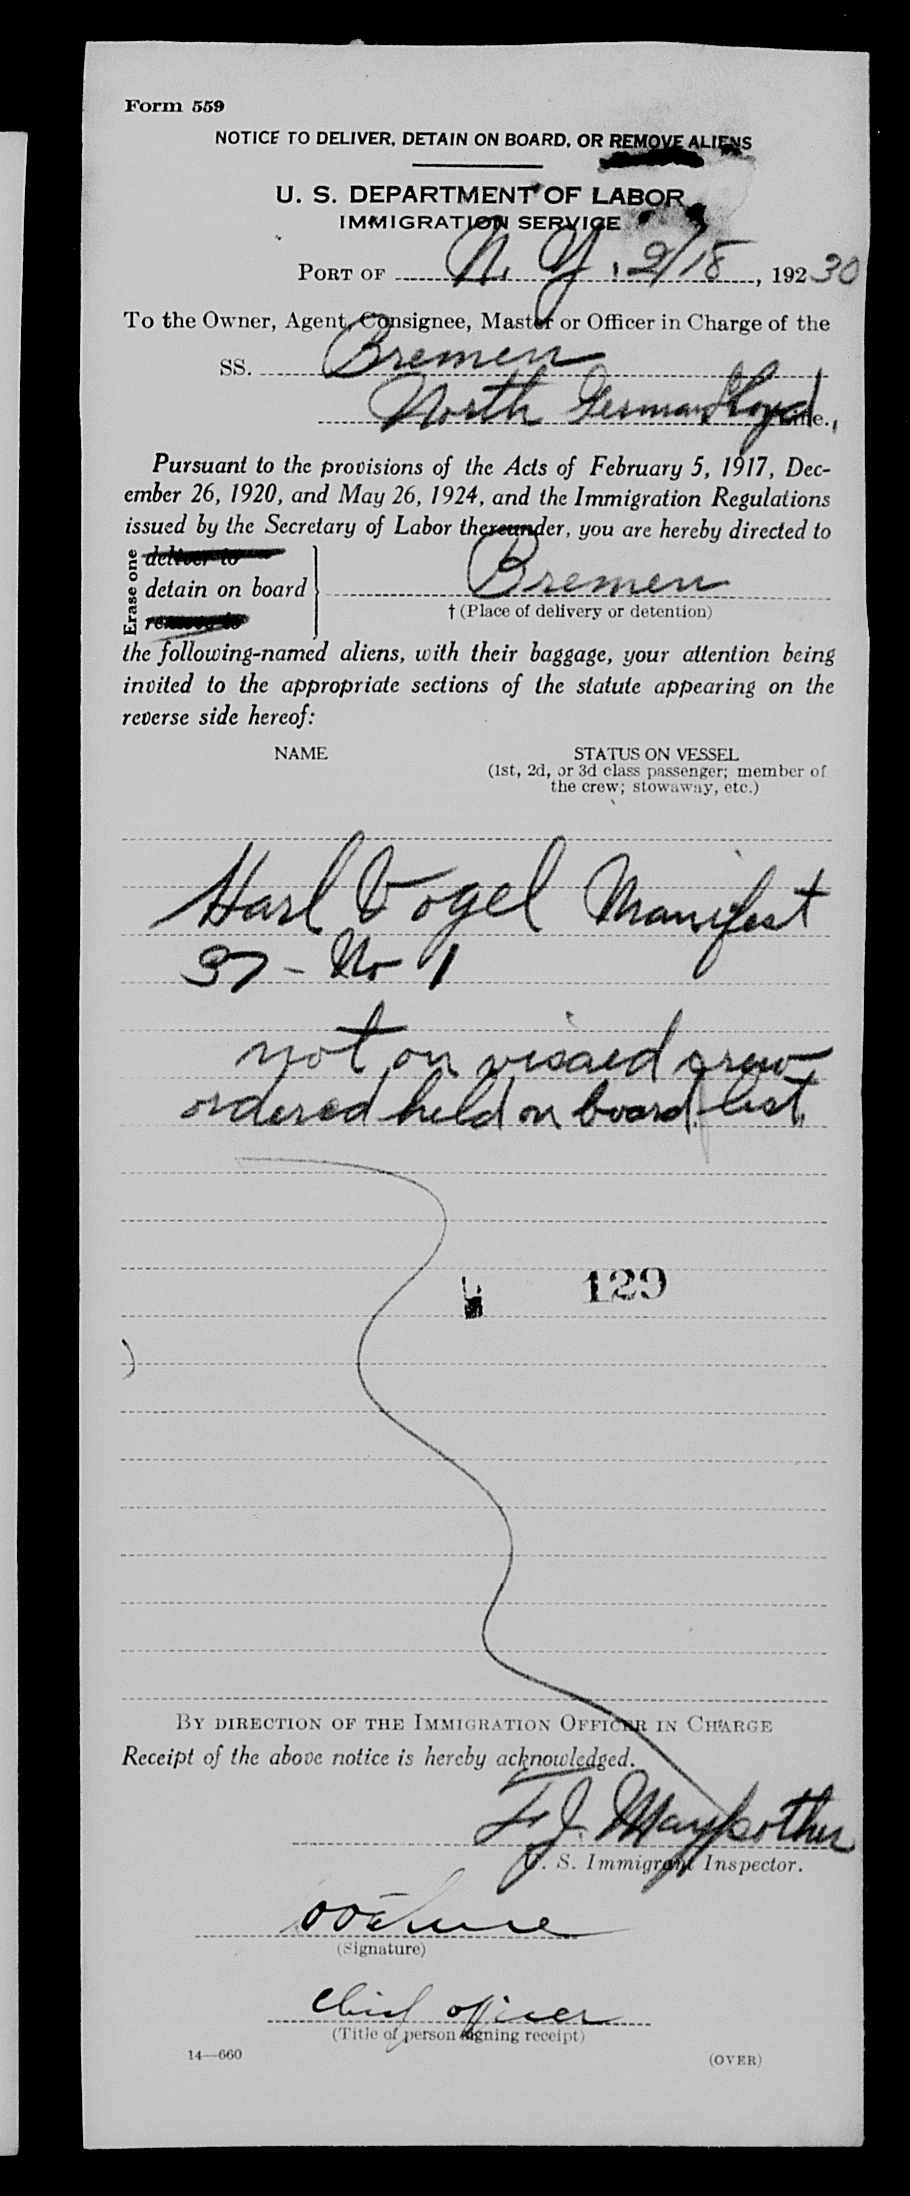 Form 559
NOTICE TO DELIVER, DETAIN ON BOARD, OR REMOVE ALIENS
U. S. DEPARTMENT OF LABOR
IMMIGRATION SERVICE
PORT OF N. Y. 2/18, 19230
To the Owner, Agent, Consignee, Master or Officer in Charge of the
SS. Bremen
North German Lloyd Line.,
Pursuant to the provisions of the Acts of February 5, 1917, Dec-
ember 26, 1920, and May 26, 1924, and the Immigration Regulations
issued by the Secretary of Labor thereunder, you are hereby directed to
Erase one
deliver to
detain on board Bremen
remove to
† (Place of delivery or detention)
the following-named aliens, with their baggage, your attention being
invited to the appropriate sections of the statute appearing on the
reverse side hereof:
NAME STATUS ON VESSEL
(1st, 2d, or 3d class passenger; member of
the crew; stowaway, etc.)
Karl Vogel Manifest
37 - No 1
not on visaed crew
ordered held on board list
129
BY DIRECTION OF THE IMMIGRATION OFFICER IN CHARGE
Receipt of the above notice is hereby acknowledged.
F. J.
U. S. Immigrant Inspector.
(Signature)
chief officer
(Title of person signing receipt)
14—660 (OVER)